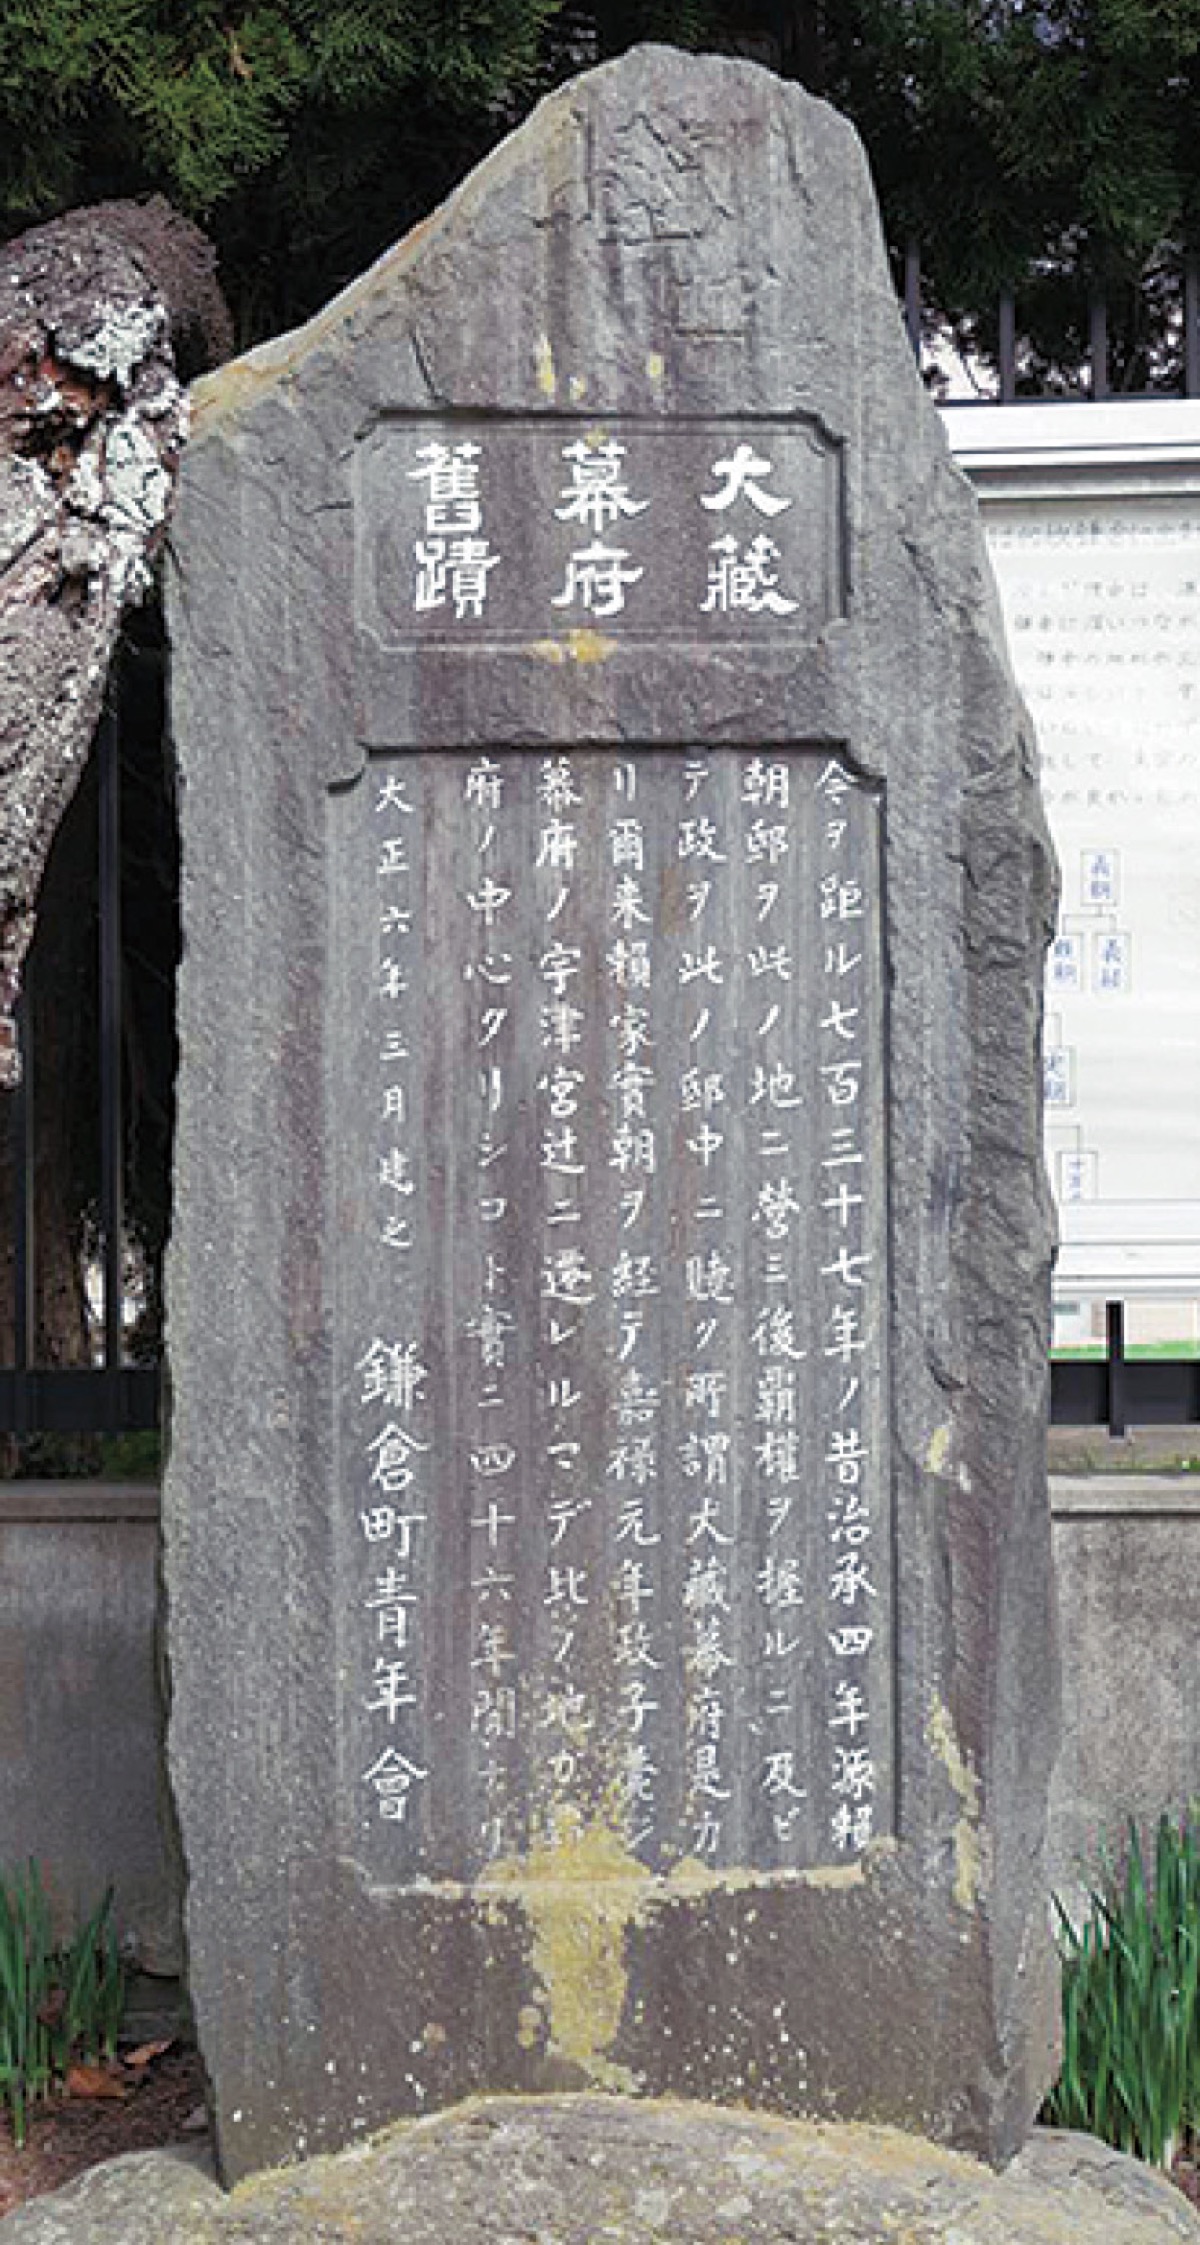 大藏
幕府
舊蹟
今ヲ距ル七百三十七年ノ昔治承四年源頼
朝邸ヲ此ノ地ニ營ミ後覇權ヲ握ルニ及ビ
テ政ヲ此ノ邸中ニ聴ク所謂大藏幕府是カ
リ爾来頼家實朝ヲ経テ嘉禄元年政子薨ジ
幕府ノ宇津宮辻ニ遷レルマデ此ノ地ガ
府ノ中心タリシコト實ニ四十六年間ナリ
大正六年三月建之 鎌倉町青年會
義朝
義経